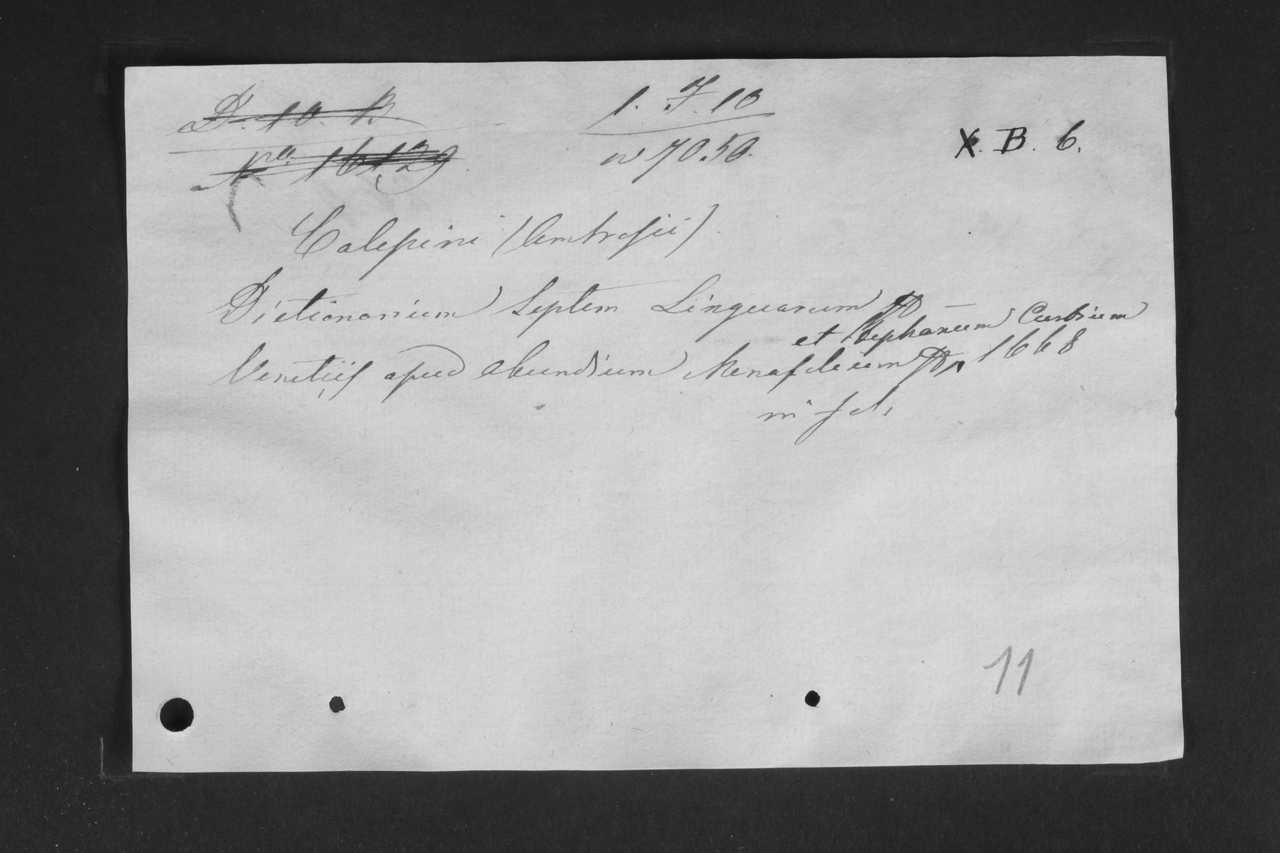 D. 10. B. 1. F. 10 X. B. 6.
No. 16,129. N 70.50.
Calepini (Ambrosii).
Dictionarium Septem Linguarum
et Stephanum Curtium
Venetiis apud Abundium Menafoleum 1668
in fol.
11